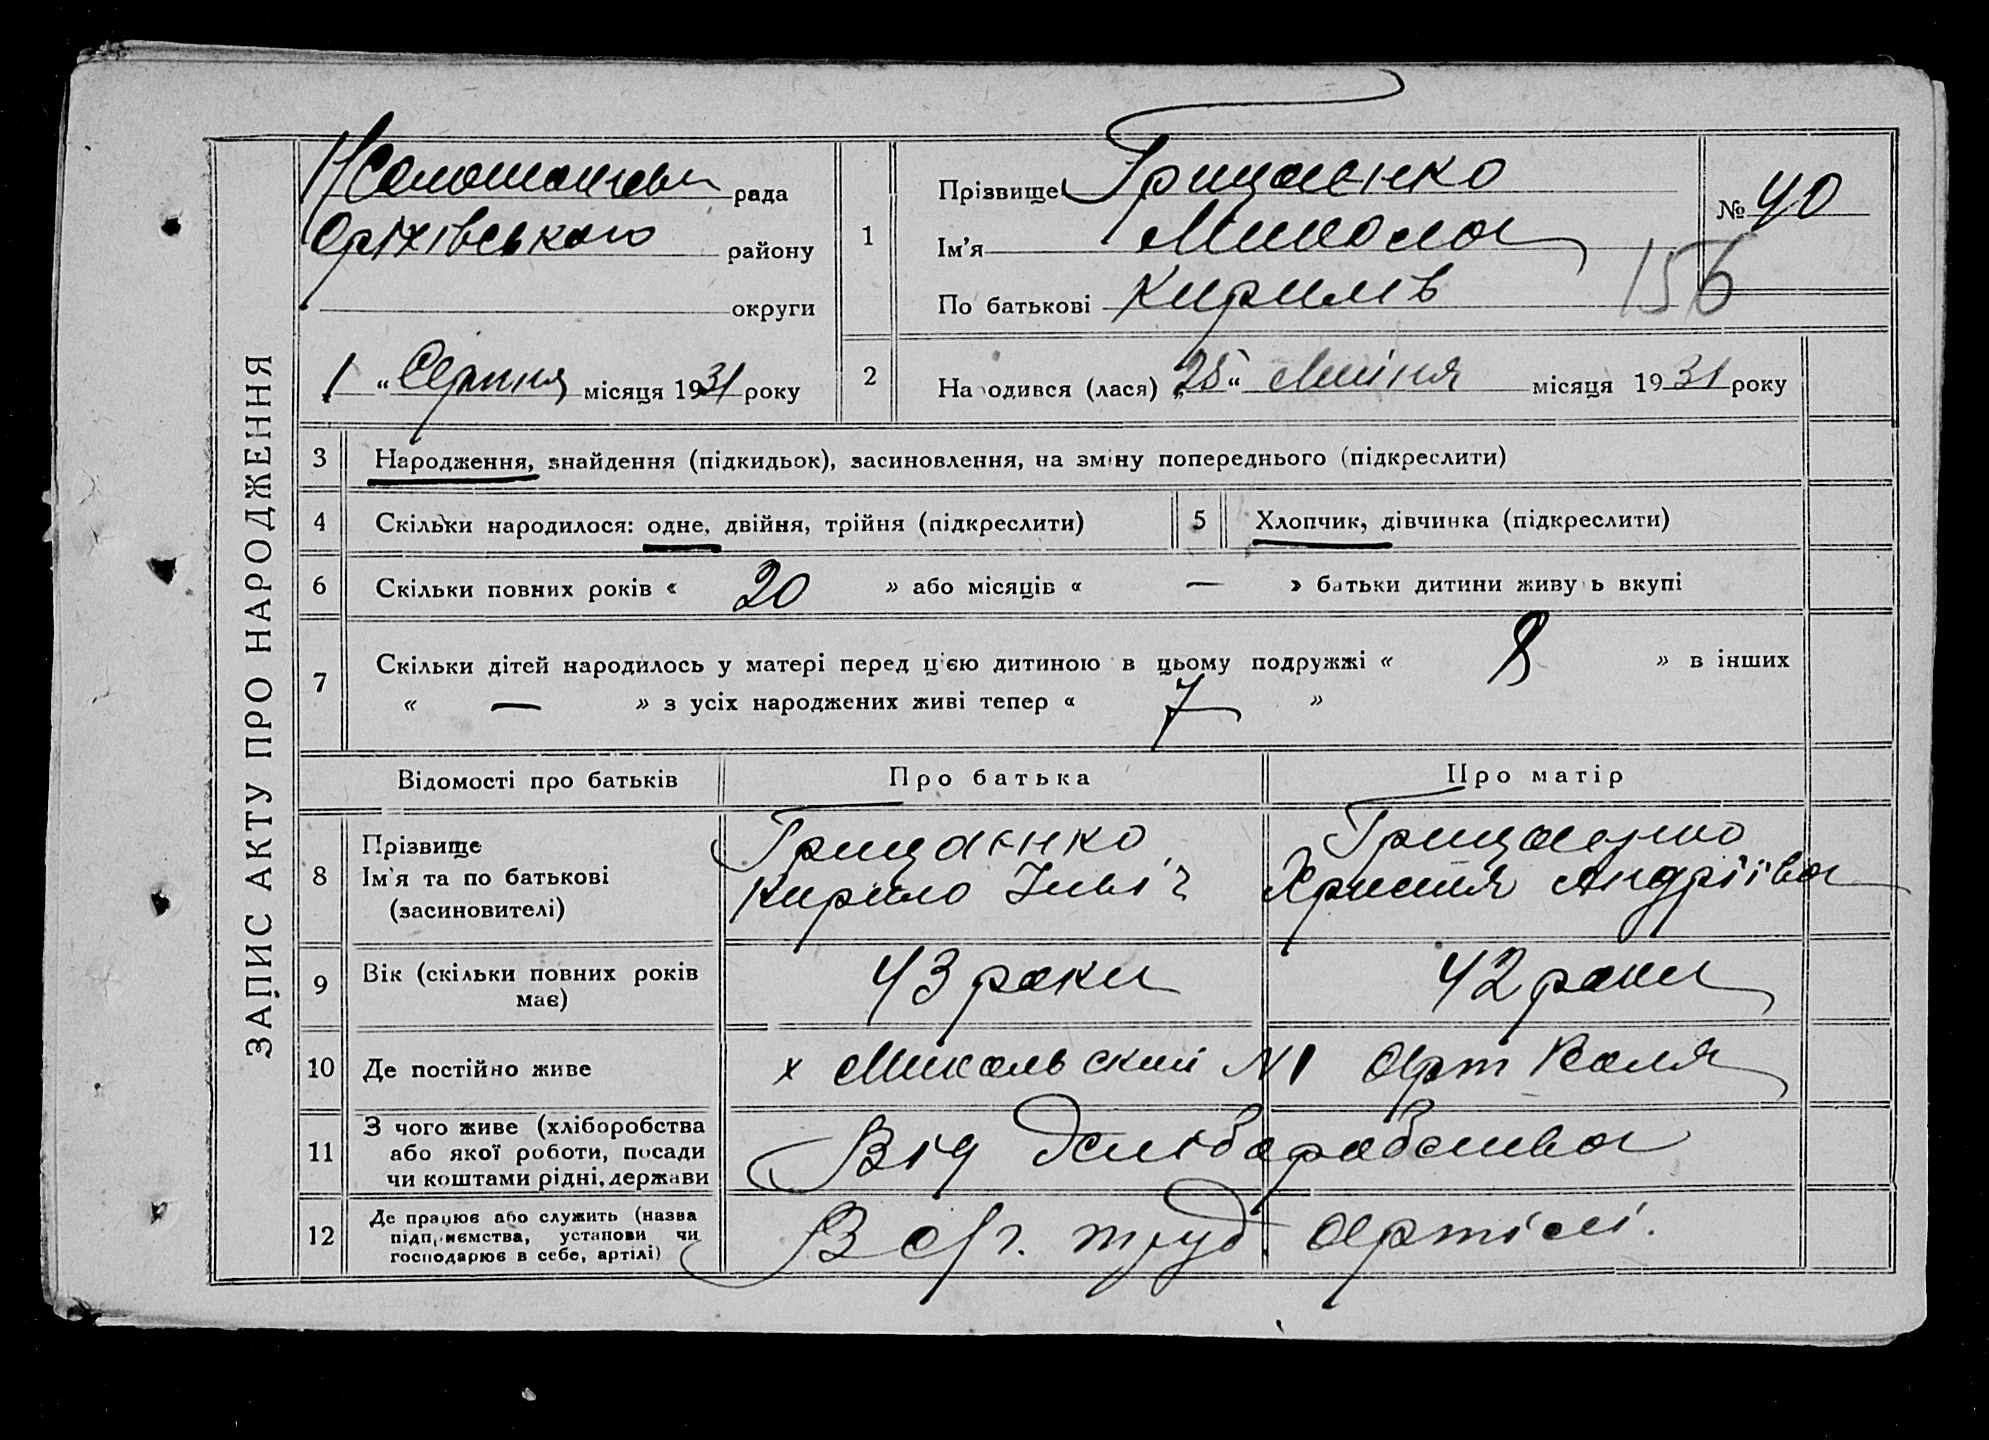 ЗАПИС АКТУ ПРО НАРОДЖЕННЯ
рада
Оріхівського району
округи
1 „ Серпня місяця 1931 року
1 Прізвище Грицаєнко
Ім'я Микола
По батькові Кирилів
№ 40
156
2 Народився (лася) „25“ Липня місяця 1931 року
3 Народження, знайдення (підкидьок), засиновлення, на зміну попереднього (підкреслити)
4 Скільки народилося: одне, двійня, трійня (підкреслити)
5 Хлопчик, дівчинка (підкреслити)
6 Скільки повних років « 20 » або місяців « — » батьки дитини живуть вкупі
7 Скільки дітей народилось у матері перед цією дитиною в цьому подружжі « 8 » в інших
« — » з усіх народжених живі тепер « 7 »
Відомості про батьків Про батька Про матір
8 Прізвище
Ім'я та по батькові
(засиновителі)
Грицаєнко
Кирило Ільіч
Грицаєнко
Христя Андріївна
9 Вік (скільки повних років
має)
43 роки
42 роки
10 Де постійно живе
х Микольский N1 Арт Воля
11 З чого живе (хліборобства
або якої роботи, посади
чи коштами рідні, держави
Від Хліборобства
12 Де працює або служить (назва
підприємства, установи чи
господарює в себе, артілі)
В труд. Артілі.